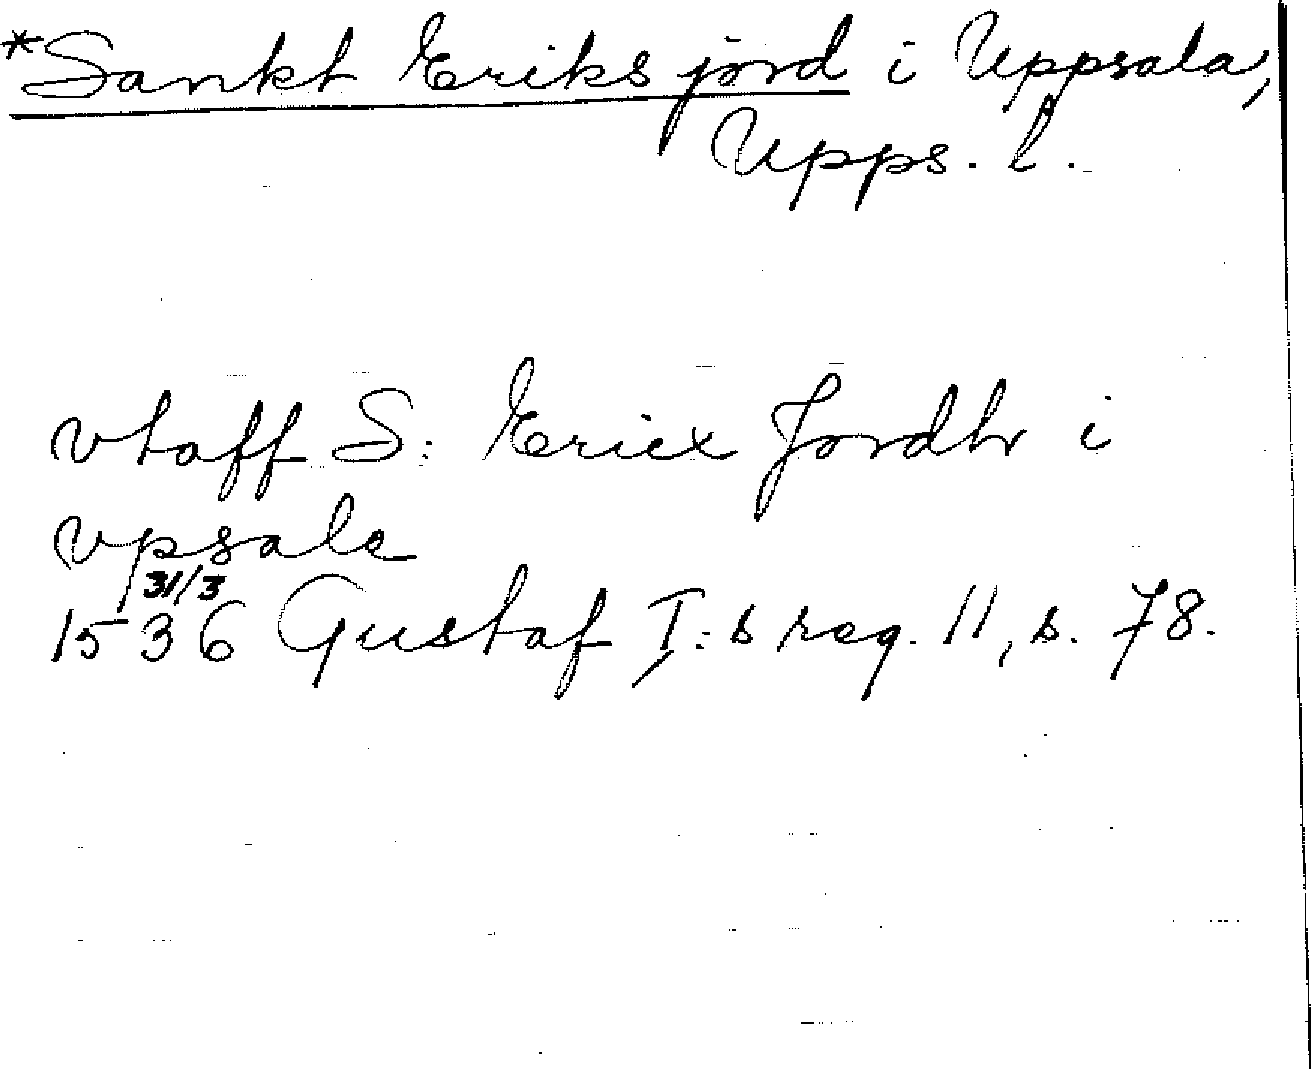 *Sankt Eriks jord i Uppsala,
Upps. l.
vtaff S: Ericx Jordh i
vpsala
31/3
1536 Gustaf I:s reg. 11, s. 78.